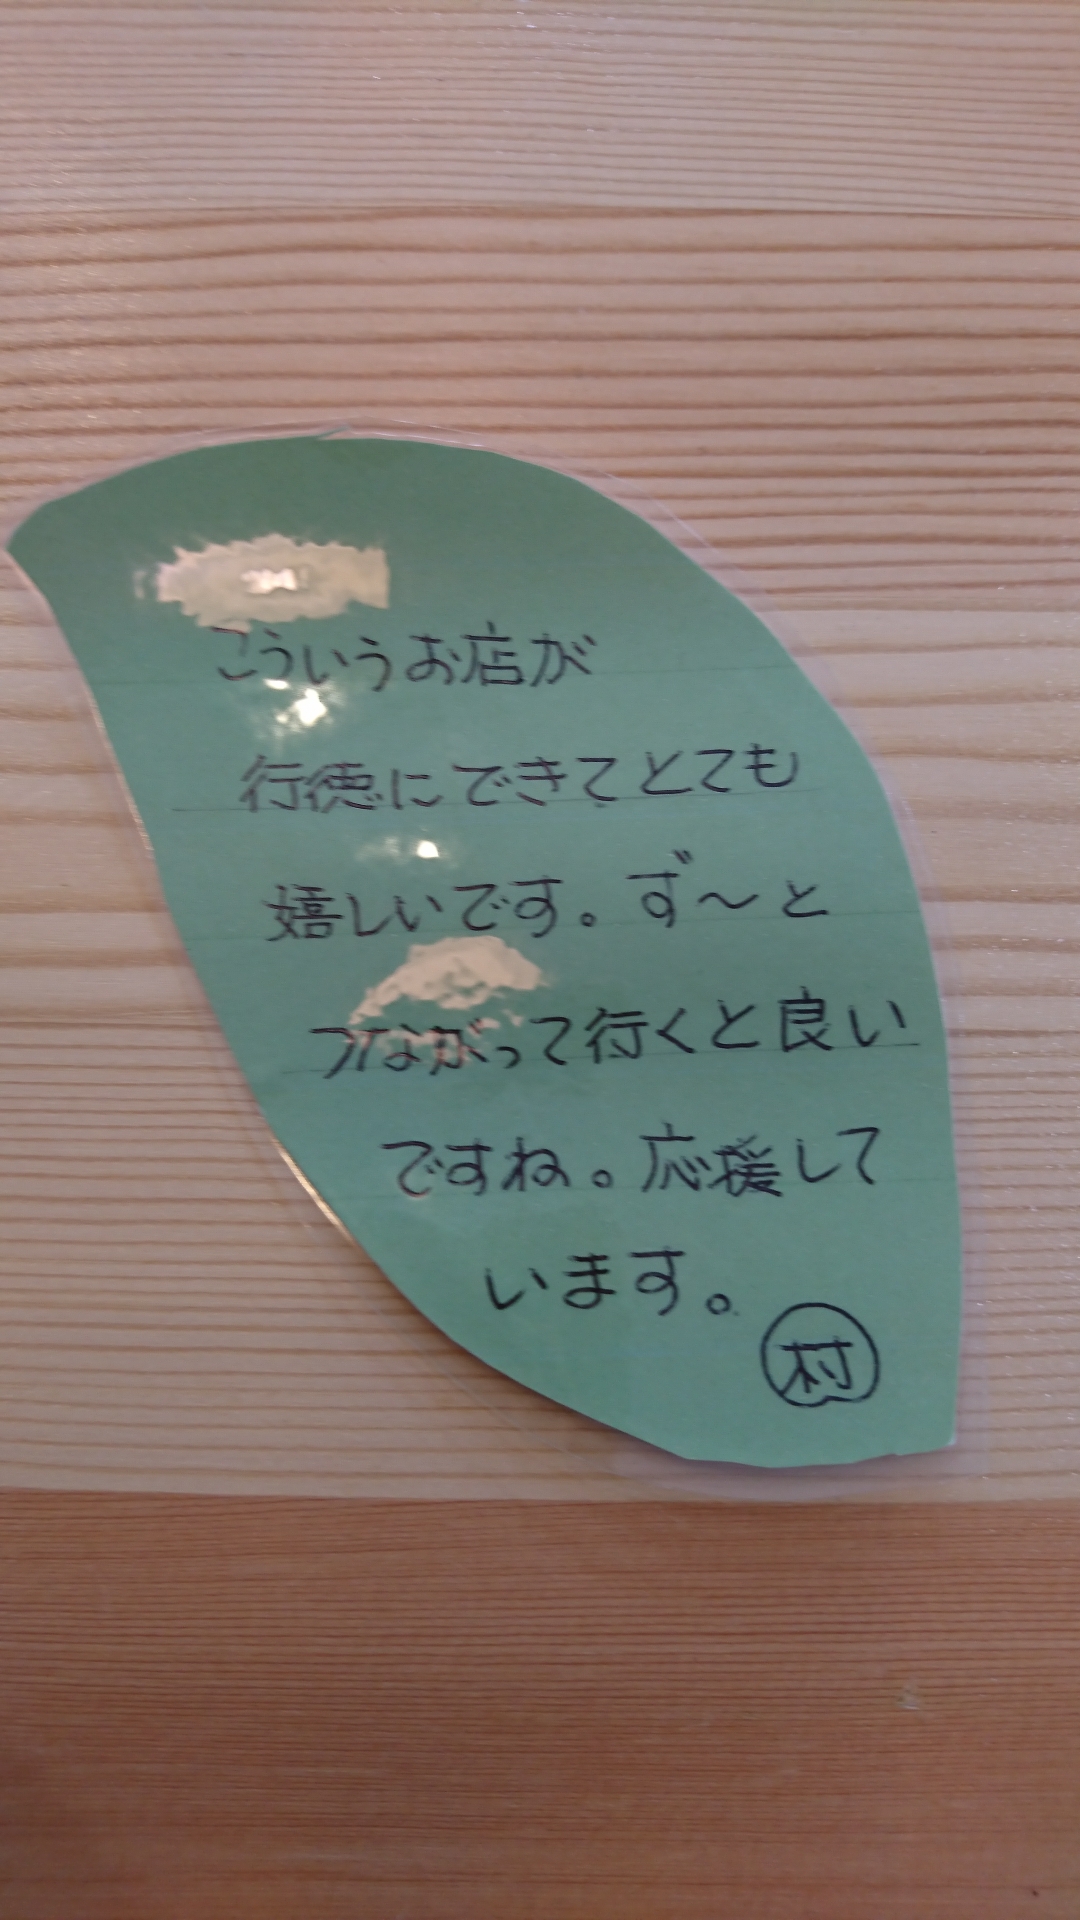 こういうお店が
行徳にできてとても
嬉しいです。ず〜と
つながって行くと良い
ですね。応援して
います。
村